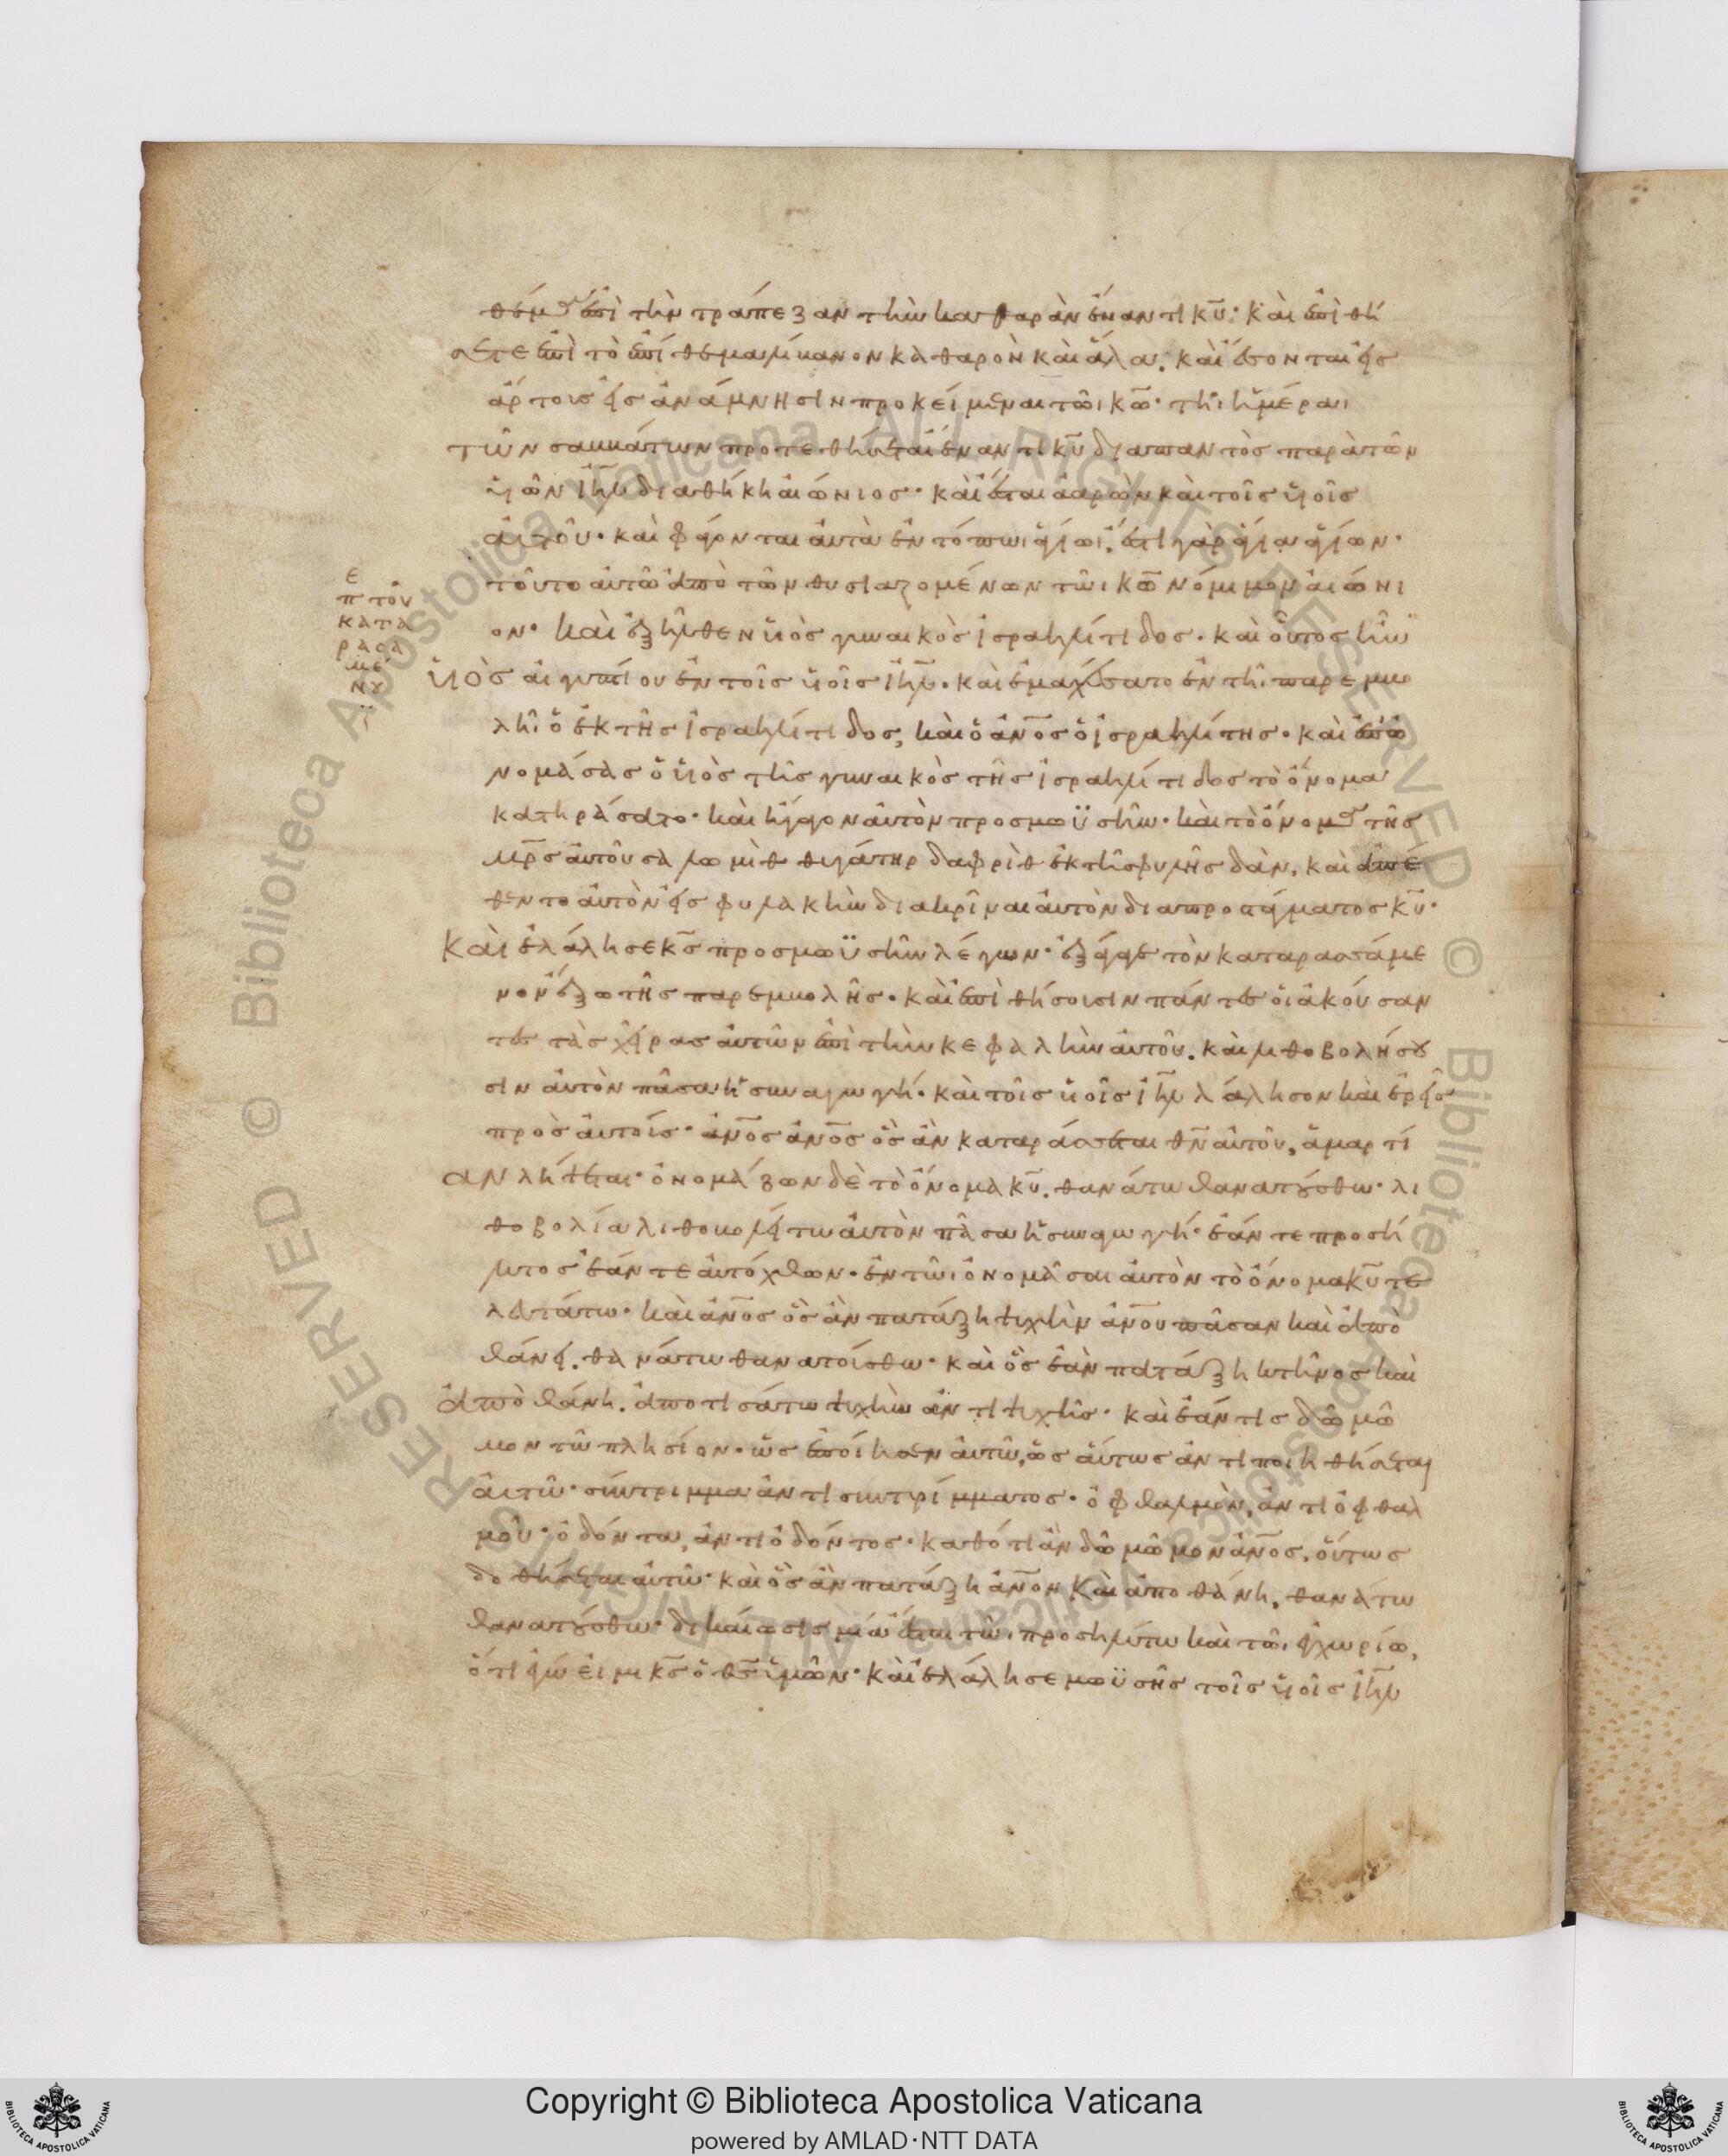 θέμα ἐπὶ τὴν τράπεζαν τὴν καθαρὰν ἔναντι κυ̅· καὶ ἐπιθή
σετε ἐπὶ τὸ ἐπίθεμα λίβανον καθαρὸν καὶ ἅλα· καὶ ἔσονται εἰς
ἄρτους εἰς ἀνάμνησιν προκείμεναι τῶι κω̅· τῆι ἡμέραι
τῶν σαββάτων προτεθήσεται ἔναντι κυ̅ διαπαντὸς παρὰ τῶν
υἱῶν ιη̅λ διαθήκη αἰώνιος· καὶ ἔσται ἀαρὼν καὶ τοῖς υἱοῖς
αὐτοῦ· καὶ φάγονται αὐτὰ ἐν τόπωι ἁγίωι. ἔστι γὰρ ἅγια ἁγίων·
τοῦτο αὐτῶ ἀπὸ τῶν θυσιαζομένων τῶι κω̅ νόμιμον αἰώνι
ον· καὶ ἐξῆλθεν υἱὸς γυναικὸς ἰσραηλίτιδος· καὶ οὗτος ἦν
υἱὸς αἰγυπτίου ἐν τοῖς υἱοῖς ιη̅λ· καὶ ἐμαχέσατο ἐν τῆ παρεμβο
λῆ ὁ ἐκ τῆς ἰσραηλίτιδος, καὶ ὁ ἄνο̅ς ὁ ἰσραηλίτης· καὶ ἐπο
νομάσας ὁ υἱὸς τῆς γυναικὸς τῆς ἰσραηλίτιδος τὸ ὄνομα
κατηράσατο· καὶ ἤγαγον αὐτὸν προς μωϋσῆν· καὶ τὸ ὄνομα τῆς
μρ̅ς αὐτοῦ σαλωμὶθ θυγάτηρ δαφρὶθ ἐκ τῆς φυλῆς δὰν. καὶ ἀπέ
θεντο αὐτὸν εἰς φυλακὴν διακρῖναι αὐτὸν δια προστάγματος κυ̅·
καὶ ἐλάλησε κς̅ προς μωϋσῆν λέγων· ἐξάγαγε τὸν καταρασάμε
νον ἔξω τῆς παρεμβολῆς· καὶ ἐπιθήσουσιν πάντες οἱ ἀκούσαν
τες τὰς χεῖρας αὐτῶν ἐπὶ τὴν κεφαλὴν αὐτοῦ. καὶ λιθοβολήσου
σιν αὐτὸν πᾶσα ἡ συναγωγή· καὶ τοῖς υἱοῖς ιη̅λ λάλησον καὶ ἐρεῖς
πρὸς αὐτούς· ἄνο̅ς ἄνο̅ς ὃς ἂν καταράσεται θν̅ αὐτοῦ, ἁμαρτί
αν λήψεται· ὀνομάζων δὲ τὸ ὄνομα κυ̅. θανάτω θανατούσθω· λι
θοβολία λιθοβολείτω αὐτὸν πᾶσα ἡ συναγωγή· ἐάν τε προσή
λυτος ἐάν τε αὐτόχθων· ἐν τῶι ὀνομάσαι αὐτὸν τὸ ὄνομα κυ̅ τε
λευτάτω· καὶ ἄνο̅ς ὃς ἂν πατάξη ψυχὴν ἀνο̅υ πᾶσαν καὶ ἀπο
θάνει. θανάτω θανατούσθω· καὶ ὃς ἐὰν πατάξη κτῆνος καὶ
ἀποθάνη. ἀποτισάτω ψυχὴν ἀντι ψυχῆς· καὶ ἐάν τις δῶ μῶ
μον τῶ πλησίον· ὡς ἐποίησεν αὐτῶ, ὡσαύτως ἀντιποιηθήσεται
αὐτῶ· σύντριμμα ἀντι συντρίμματος· ὀφθαλμὸν, ἀντι ὀφθαλ
μοῦ· ὀδόντα, ἀντι ὀδόντος· καθότι ἂν δῶ μῶμον ἄνο̅ς, οὕτως
δοθήσεται αὐτῶ· καὶ ὃς ἂν πατάξη ἄνο̅ν καὶ ἀποθάνη. θανάτω
θανατούσθω· δικαίωσις μία ἔσται τῶι προσηλύτω καὶ τῶι ἐγχωρίω,
ὅτι ἐγώ εἰμι κς̅ ὁ θς̅ ὑμῶν· καὶ ἐλάλησε μωϋσῆς τοῖς υἱοῖς ιη̅λ
ε
π τὸν
κατα
ρασα
μέ
νου
Copyright © Biblioteca Apostolica Vaticana
powered by AMLAD·NTT DATA